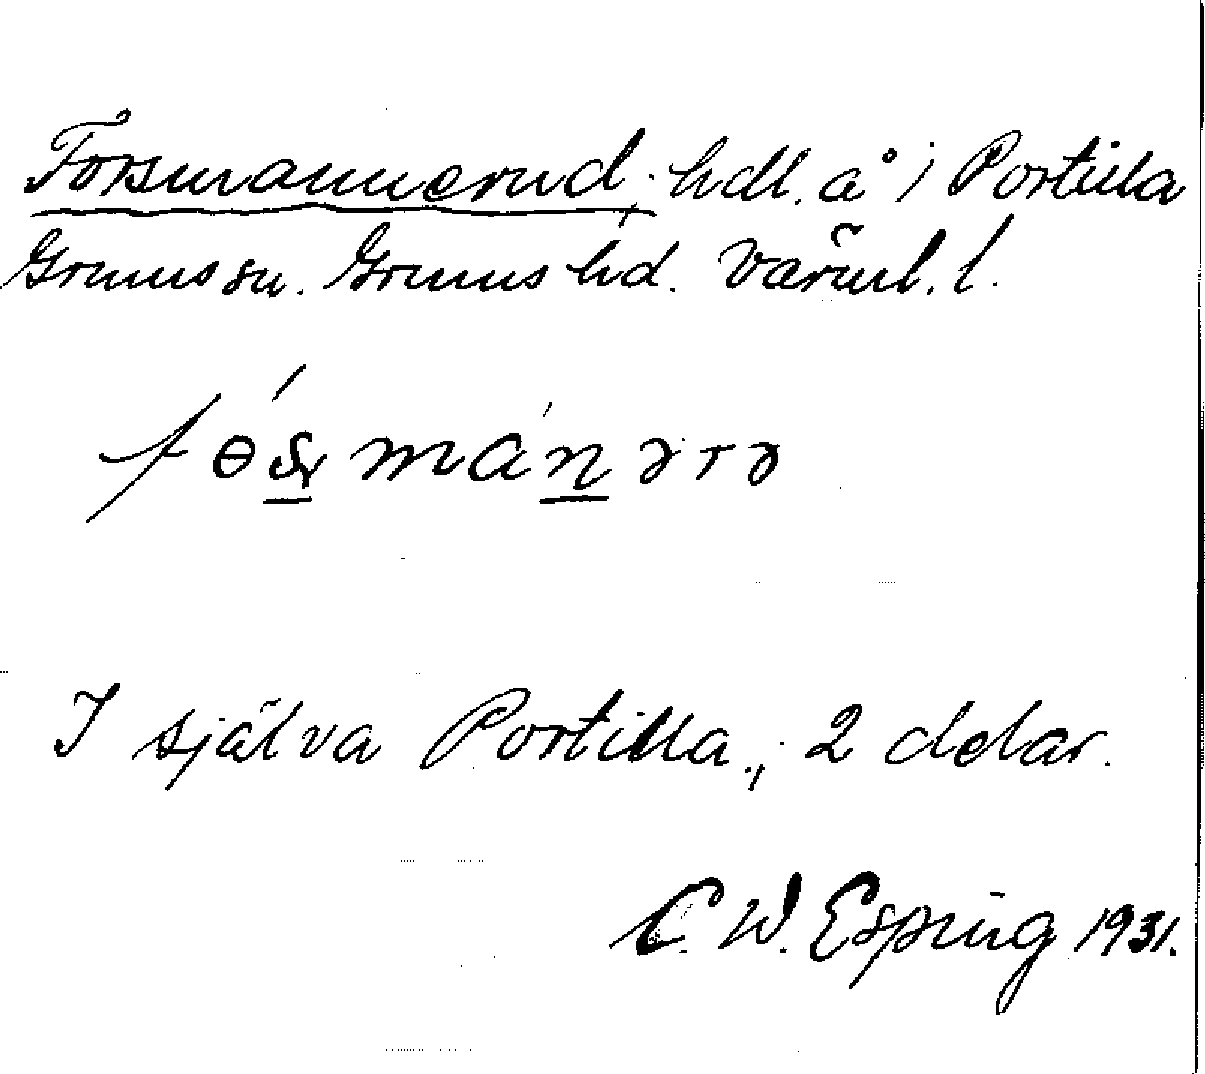 Forsmannerud, hdl. å i Portilla
Grums sn. Grums hd. Värml. l.
fɵs̱mánərə
I själva Portilla., 2 delar.
C. W. Esping 1931.